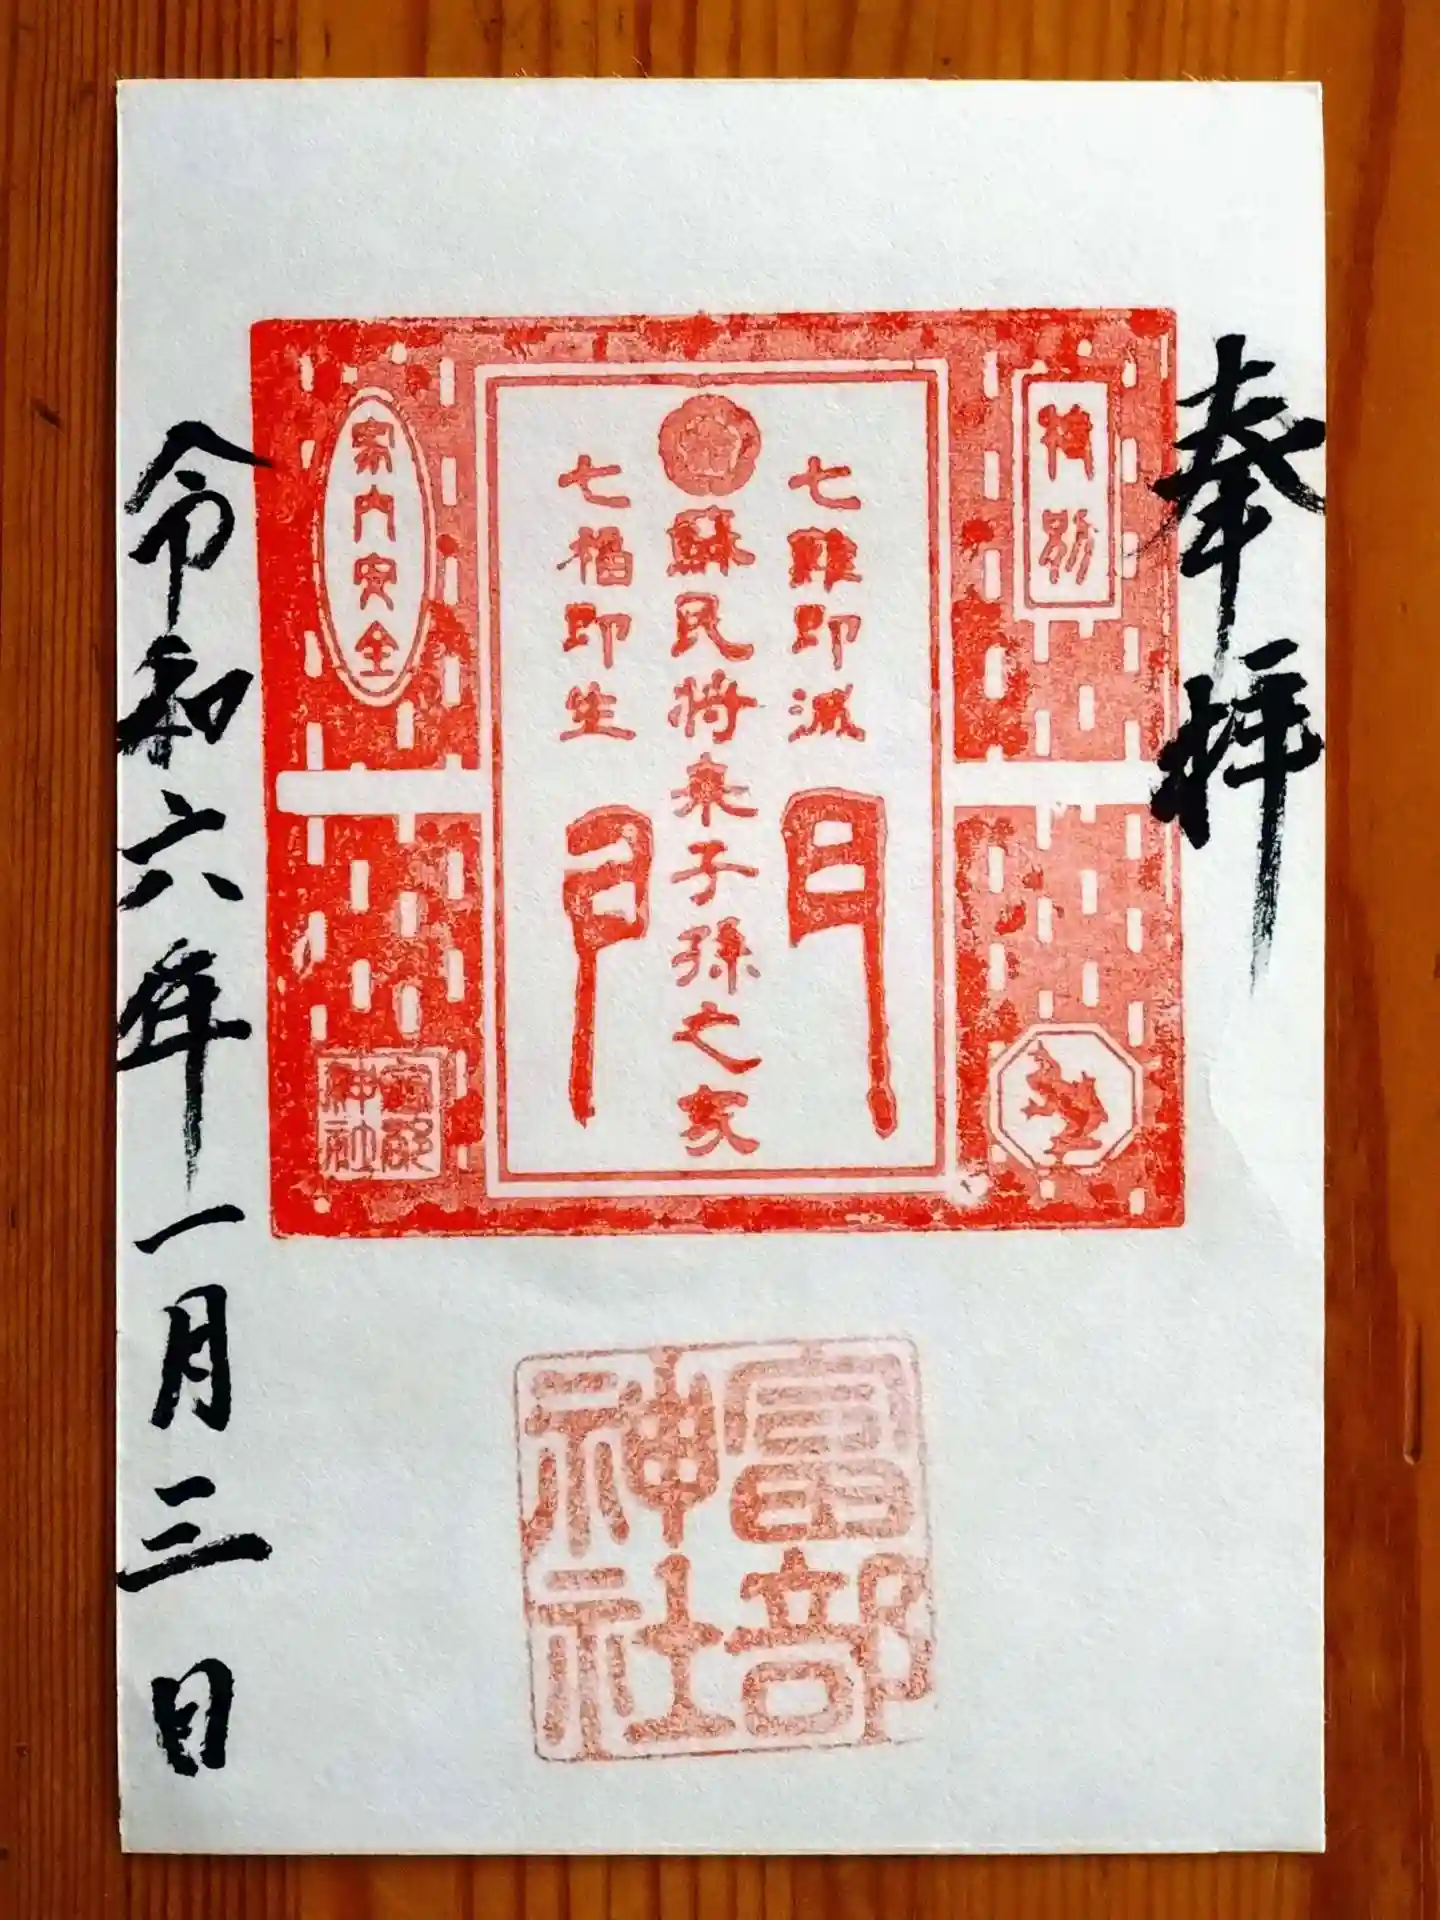 奉拝
特別
七難即滅
蘇民将来子孫之家
七福即生
門
家内安全
富部
神社
富部
神社
令和六年一月三日